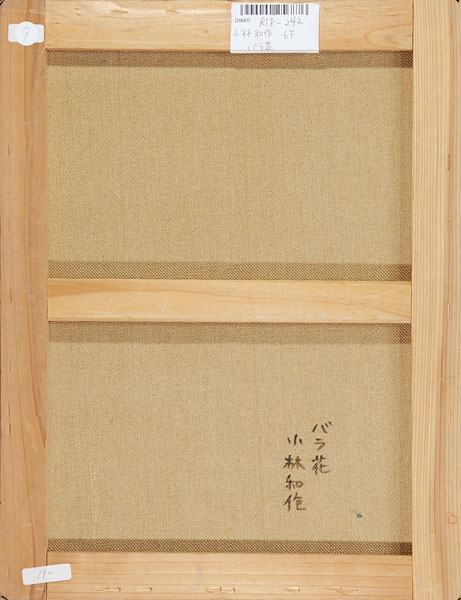 9
R18-242
小林和作 6F
バラ花
バラ花
小林和作